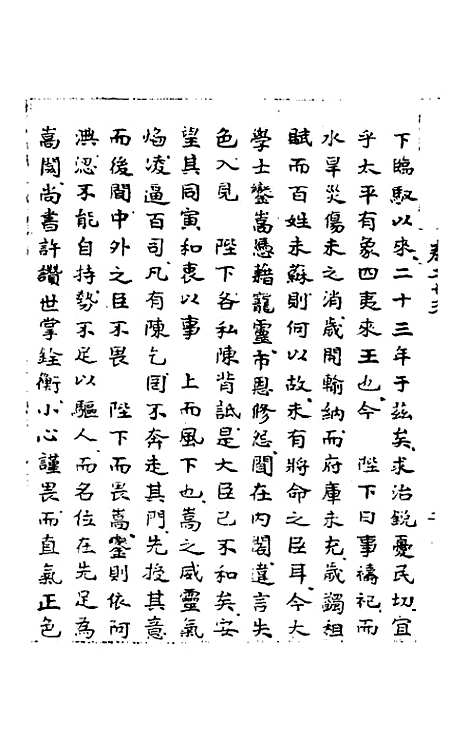 下臨馭以來二十三年于茲矣求治銳憂民切宜
乎太平有象四夷來王也今　陛下日事禱祀而
水旱災傷未之消歲開輸納而府庫未充歲蠲租
賦而百姓未蘇則何以故未有將命之臣耳今大
學士鑾嵩憑藉寵靈市恩修怨間在內閣違言失
色入見　陛下各私陳背詆是大臣已不和矣安
望其同寅和衷以事　上而風下也嵩之威靈氣
焰凌逼百司凡有陳乞罔不奔走其門先授其意
而後聞中外之臣不畏　陛下而畏嵩鑾則依阿
淟涊不能自持勢不足以驅人而名位在先足為
嵩閡尚書許讚世掌銓衡小心謹畏而直氣正色